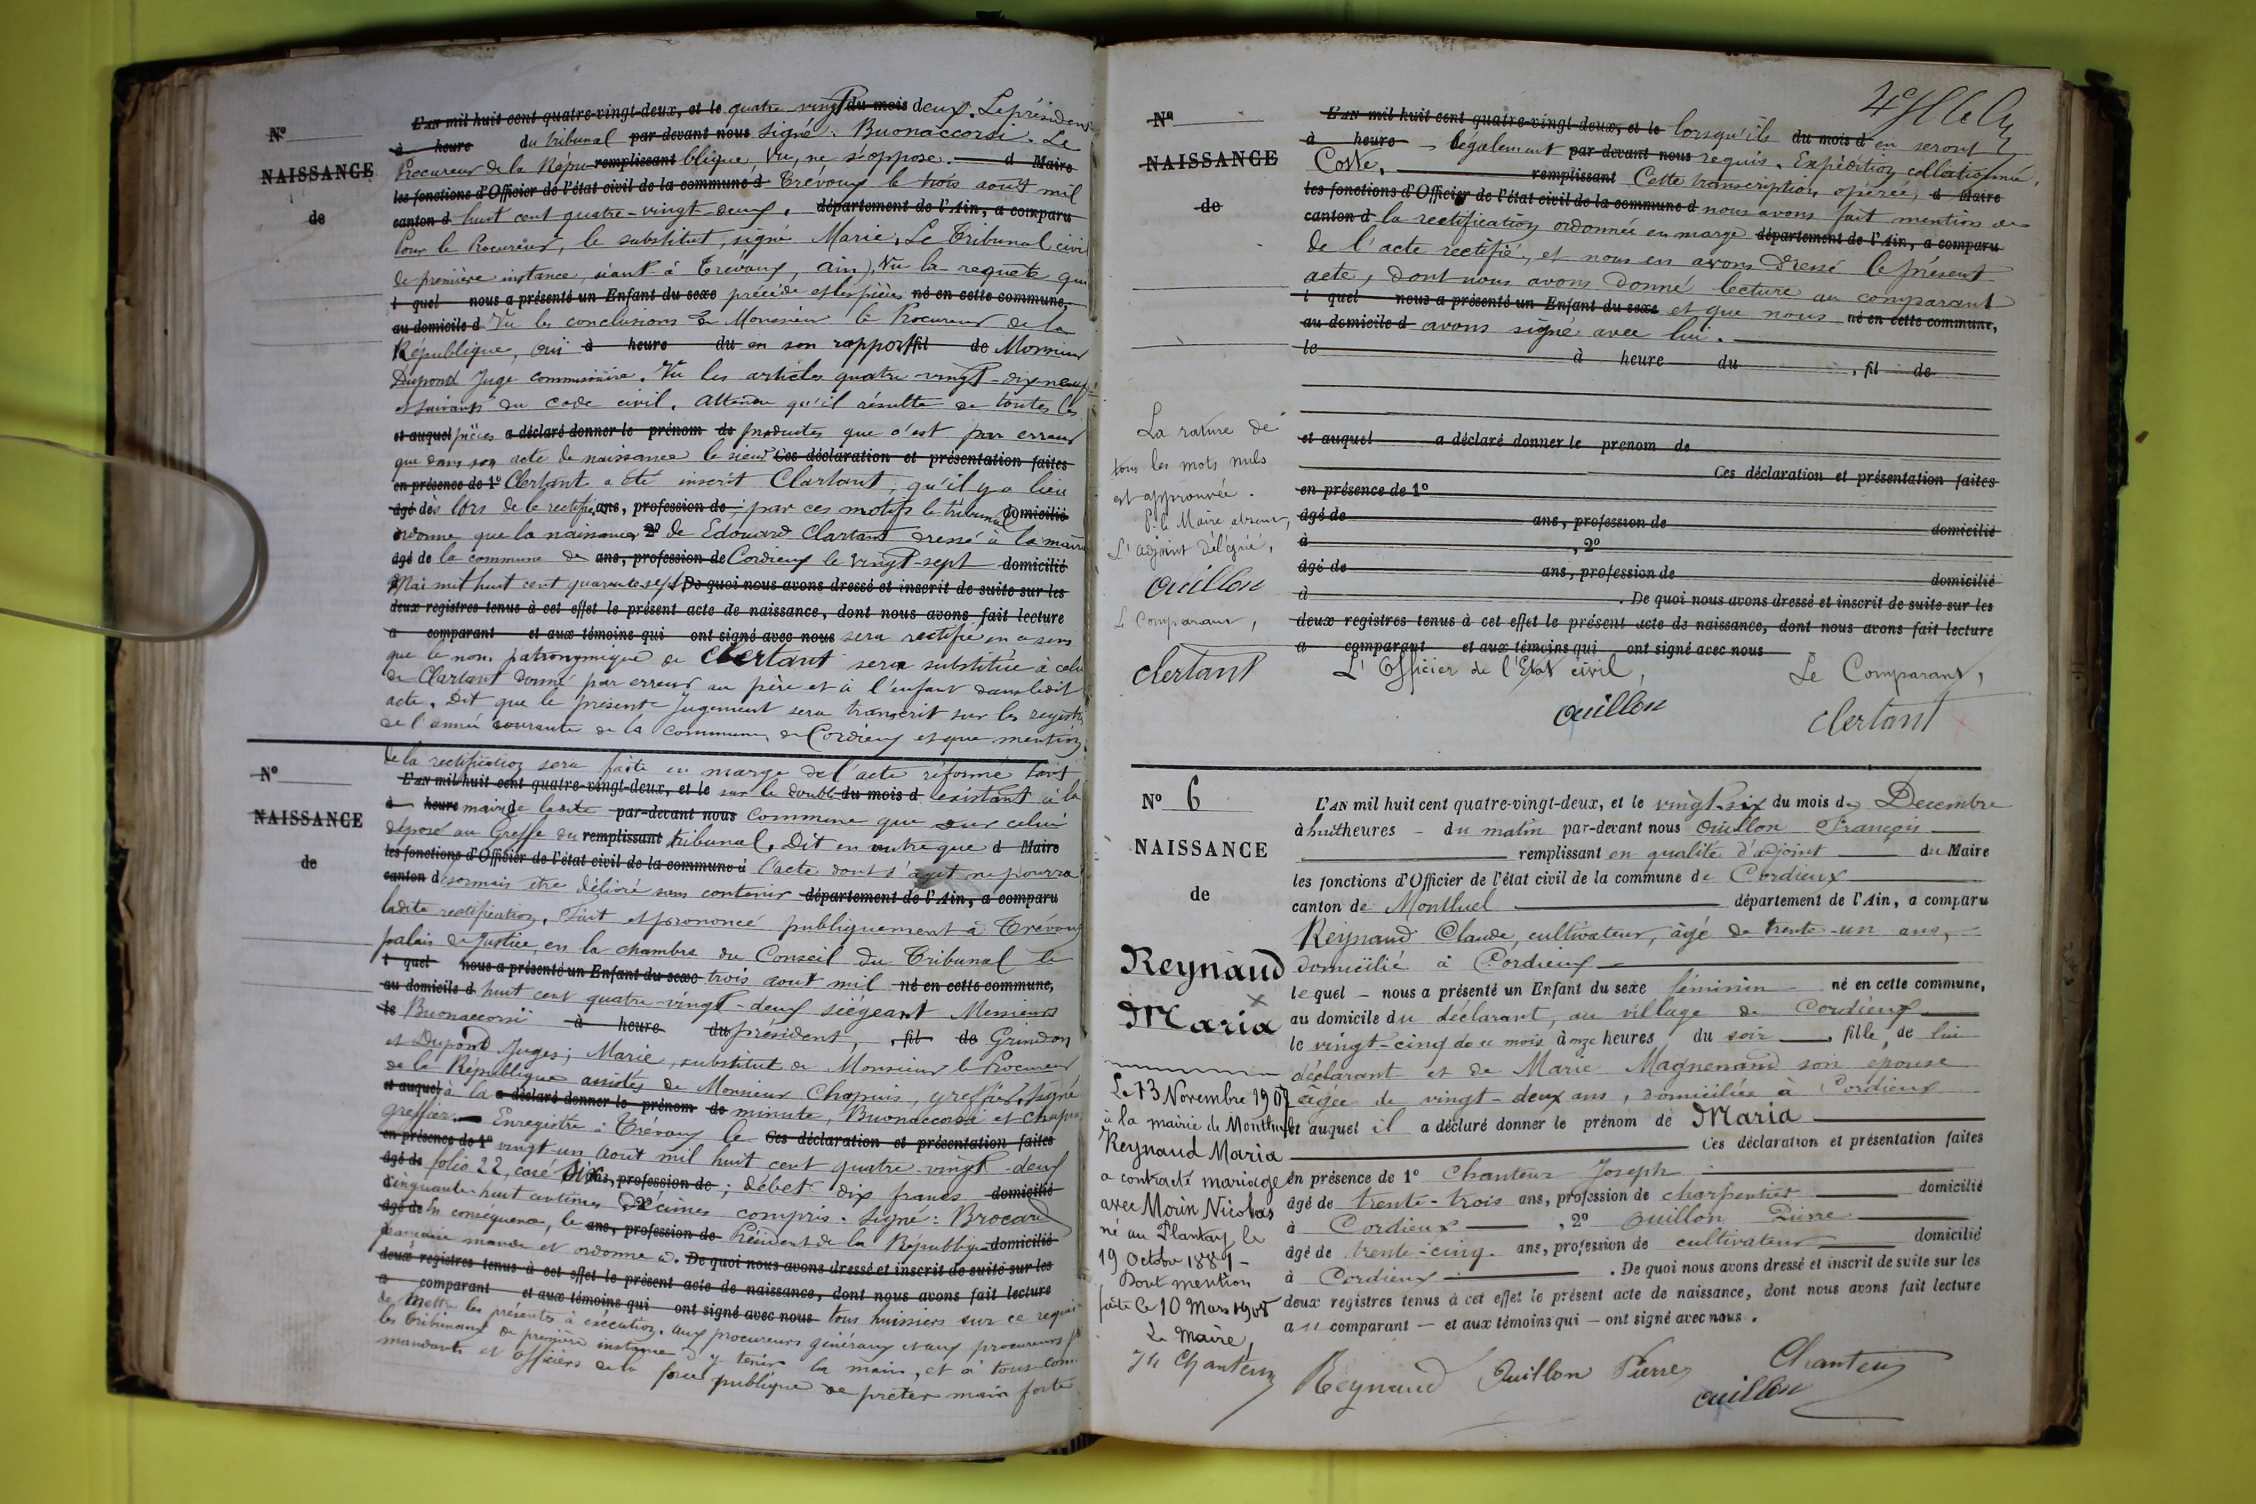 N°
NAISSANCE
de
L'AN mil huit cent quatre-vingt-deux, et le quatre vingt du mois deux. Le président
à heure du tribunal par-devant nous signé : Buonaccorsi. Le
Procureur de la Répu remplissant blique, Vu, ne s'oppose. d Maire
les fonctions d'Officier de l'état civil de la commune d Trévoux le trois aout mil
canton d huit cent quatre-vingt-deux. département de l'Ain, a comparu
Pour le Procureur, le substitut, signé Marie. Le Tribunal civil
de première instance, séant à Trévoux, (ain). Vu la requête qui
l quel nous a présenté un Enfant du sexe précède et les pièces né en cette commune,
au domicile d Vu les conclusions de Monsieur le Procureur de la
République, oui à heure du en son rapport fil de Monsieur
Dupond Juge commissaire. Vu les articles quatre-vingt-dix neuf
et suivants du code civil. Attendu qu'il résulte de toutes les
et auquel pièces a déclaré donner le prénom de produites que c'est par erreur
que dans son acte de naissance le sieur Ces déclaration et présentation faites
en présence de 1° Clertant a été inscrit Clartant, qu'il y a lieu
âgé de dès lors de le rectifier, ans, profession de ; par ces motifs le tribunal domicilié
ordonne que la naissance 2° de Edouard Clartant dressé à la mairie
âgé de la commune de ans, profession de Cordieux le vingt-sept domicilié
Mai mil huit cent quarante sept De quoi nous avons dressé et inscrit de suite sur les
deux registres tenus à cet effet le présent acte de naissance, dont nous avons fait lecture
a comparant et aux témoins qui ont signé avec nous sera rectifié en ce sens
que le nom patronymique de Clertant sera substitué à celui
de Clartant donné par erreur au père et à l'enfant dans ledit
acte. Dit que le présent Jugement sera transcrit sur les registres
de l'année courante de la commune de Cordieux et que mention
de la rectification sera faite en marge de l'acte réformé tant
N°
NAISSANCE
de
L'AN mil huit cent quatre-vingt-deux, et le sur le double du mois d existant à la
à heure mairie de ladite par-devant nous commune que sur celui
déposé au Greffe du remplissant tribunal. Dit en outre que d Maire
les fonctions d'Officier de l'état civil de la commune d l'acte dont s'agit ne pourra
canton d désormais être délivré sans contenir département de l'Ain, a comparu
ladite rectification. Fait et prononcé publiquement à Trévoux
palais de Justice, en la chambre du Conseil du Tribunal le
l quel nous a présenté un Enfant du sexe trois aout mil né en cette commune,
au domicile d huit cent quatre-vingt-deux siégeant Messieurs
le Buonaccorsi à heure du président, fil de Grindon
et Dupond Juges; Marie, substitut de Monsieur le Procureur
de la République assistés de Monsieur Chapuis, greffier. Signé
et auquel à la a déclaré donner le prénom de minute, Buonaccorsi et Chapuis
greffier. Enregistré à Trévoux le Ces déclaration et présentation faites
en présence de 1° vingt-un aout mil huit cent quatre-vingt-deux
âgé de folio 22, case ans, profession de ; débet dix francs domicilié
cinquante-huit centimes 2° décimes compris. Signé : Brocard
âgé de En conséquence, le ans, profession de Président de la République domicilié
française mande et ordonne à De quoi nous avons dressé et inscrit de suite sur les
deux registres tenus à cet effet le présent acte de naissance, dont nous avons fait lecture
a comparant et aux témoins qui ont signé avec nous tous huissiers sur ce requis
de mettre les présentes à exécution. aux procureurs généraux et aux procureurs
les tribunaux de première instance d'y tenir la main, et à tous com-
mandants et officiers de la force publique de prêter main forte
N°
NAISSANCE
de
L'AN mil huit cent quatre-vingt-deux, et le lorsqu'ils du mois d en seront
à heure légalement par-devant nous requis. Expédition collationnée,
Coste. remplissant Cette transcription opérée, d Maire
les fonctions d'Officier de l'état civil de la commune d nous avons fait mention de
canton d la rectification ordonnée en marge département de l'Ain, a comparu
de l'acte rectifié, et nous en avons dressé le présent
acte, dont nous avons donné lecture au comparant
l quel nous a présenté un Enfant du sexe et que nous né en cette commune,
au domicile d avons signé avec lui.
le à heure du , fil de
et auquel a déclaré donner le prénom de
Ces déclaration et présentation faites
en présence de 1°
âgé de ans, profession de domicilié
à , 2°
âgé de ans, profession de domicilié
à . De quoi nous avons dressé et inscrit de suite sur les
deux registres tenus à cet effet le présent acte de naissance, dont nous avons fait lecture
a comparant et aux témoins qui ont signé avec nous
La rature de
tous les mots nuls
est approuvée.
P. le Maire absent,
L'adjoint délégué,
Ouillon
Le Comparant,
Clertant
L'Officier de l'Etat civil,
Le Comparant,
Ouillon
Clertant
N° 6
NAISSANCE
de
Reynaud
Maria
L'AN mil huit cent quatre-vingt-deux, et le vingt-six du mois de Decembre
à huit heures – du matin par-devant nous Ouillon François
remplissant en qualité d'adjoint du Maire
les fonctions d'Officier de l'état civil de la commune de Cordieux
canton de Montluel département de l'Ain, a comparu
Reynaud Claude, cultivateur, âgé de trente-un ans,
domicilié à Cordieux
lequel – nous a présenté un Enfant du sexe féminin né en cette commune,
au domicile du déclarant, au village de Cordieux
le vingt-cinq de ce mois à onze heures du soir , fille de lui
déclarant et de Marie Magnenand son epouse
âgée de vingt-deux ans, domiciliée à Cordieux
et auquel il a déclaré donner le prénom de Maria
Ces déclaration et présentation faites
en présence de 1° Chanteur Joseph
âgé de trente-trois ans, profession de charpentier domicilié
à Cordieux , 2° Ouillon Pierre
âgé de trente-cinq ans, profession de cultivateur domicilié
à Cordieux . De quoi nous avons dressé et inscrit de suite sur les
deux registres tenus à cet effet le présent acte de naissance, dont nous avons fait lecture
au comparant – et aux témoins qui – ont signé avec nous.
Le 13 Novembre 1907
à la mairie de Montluel
Reynaud Maria
a contracté mariage
avec Morin Nicolas
né au Plantay le
19 Octobre 1881 –
Dont mention
faite le 10 Mars 1908
Le Maire,
Chanteur
Reynaud Ouillon Pierre Chanteur
Ouillon